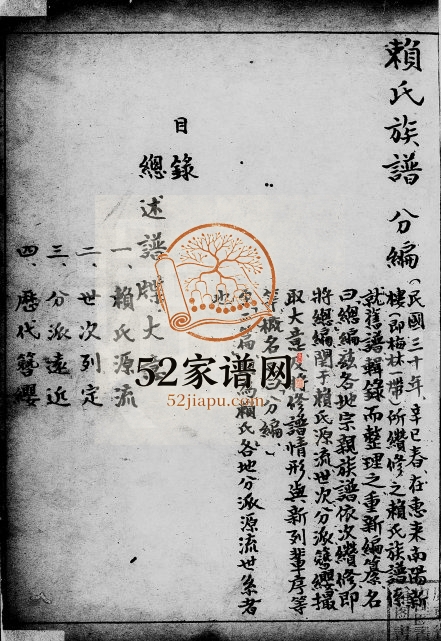 賴氏族譜 分編
（民國三十年、辛巳春、在惠来南陽新
樓（即梅林一帶）所續修之賴氏族譜係
就旧譜輯錄而整理之重新編纂、名
曰總編兹各地宗親族譜依次續修即
將總編関于賴氏源流世次分派簪纓撮
取大意
修譜情形與新列輩序等
編
賴氏各地分派源流世系者
目錄
總述譜牒大意
一、賴氏源流
二、世次列定
三、分派遠近
四、歷代簪纓
52家谱网
52jiapu.com